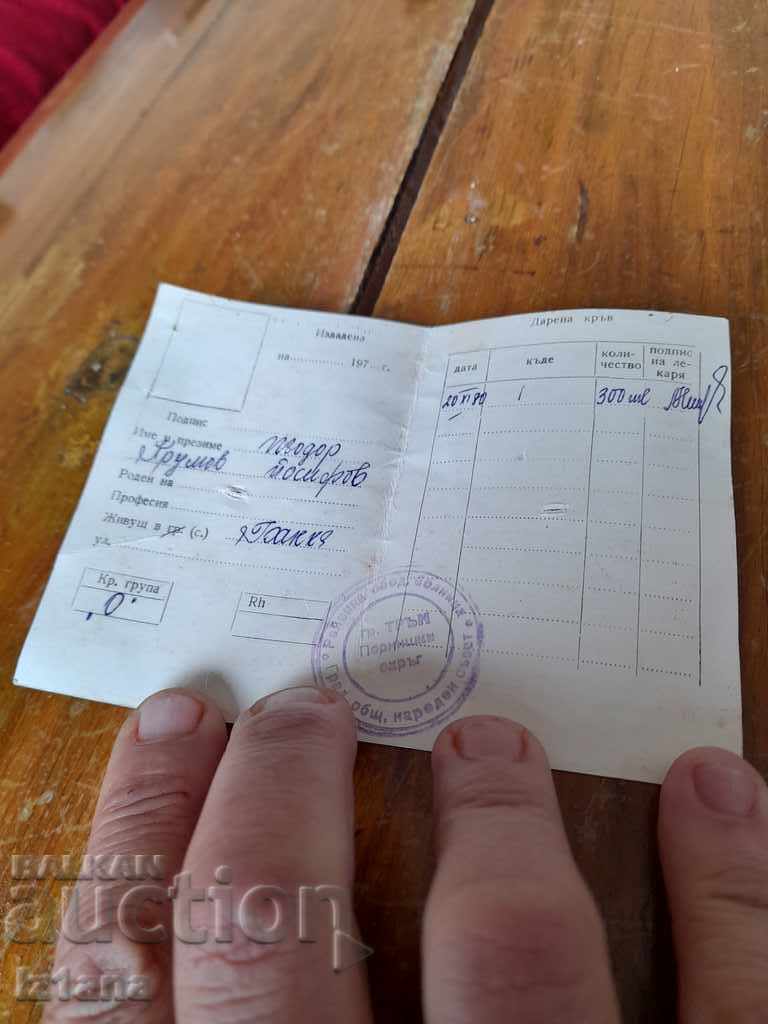 Издадена
на ............ 197... г.
Подпис
Име презиме Теодор
Крумов Йосифов
Роден на
Професия
Живущ в гр. (с.)
ул.
Кр. група
"О"
Rh
Дарена кръв
дата къде коли-чество подпис на ле-каря
20 XI 80 300 мл
гр. ТРЪН
Пернишки
окръг
Град. общ. народен съвет
BALKAN
auction
iztana